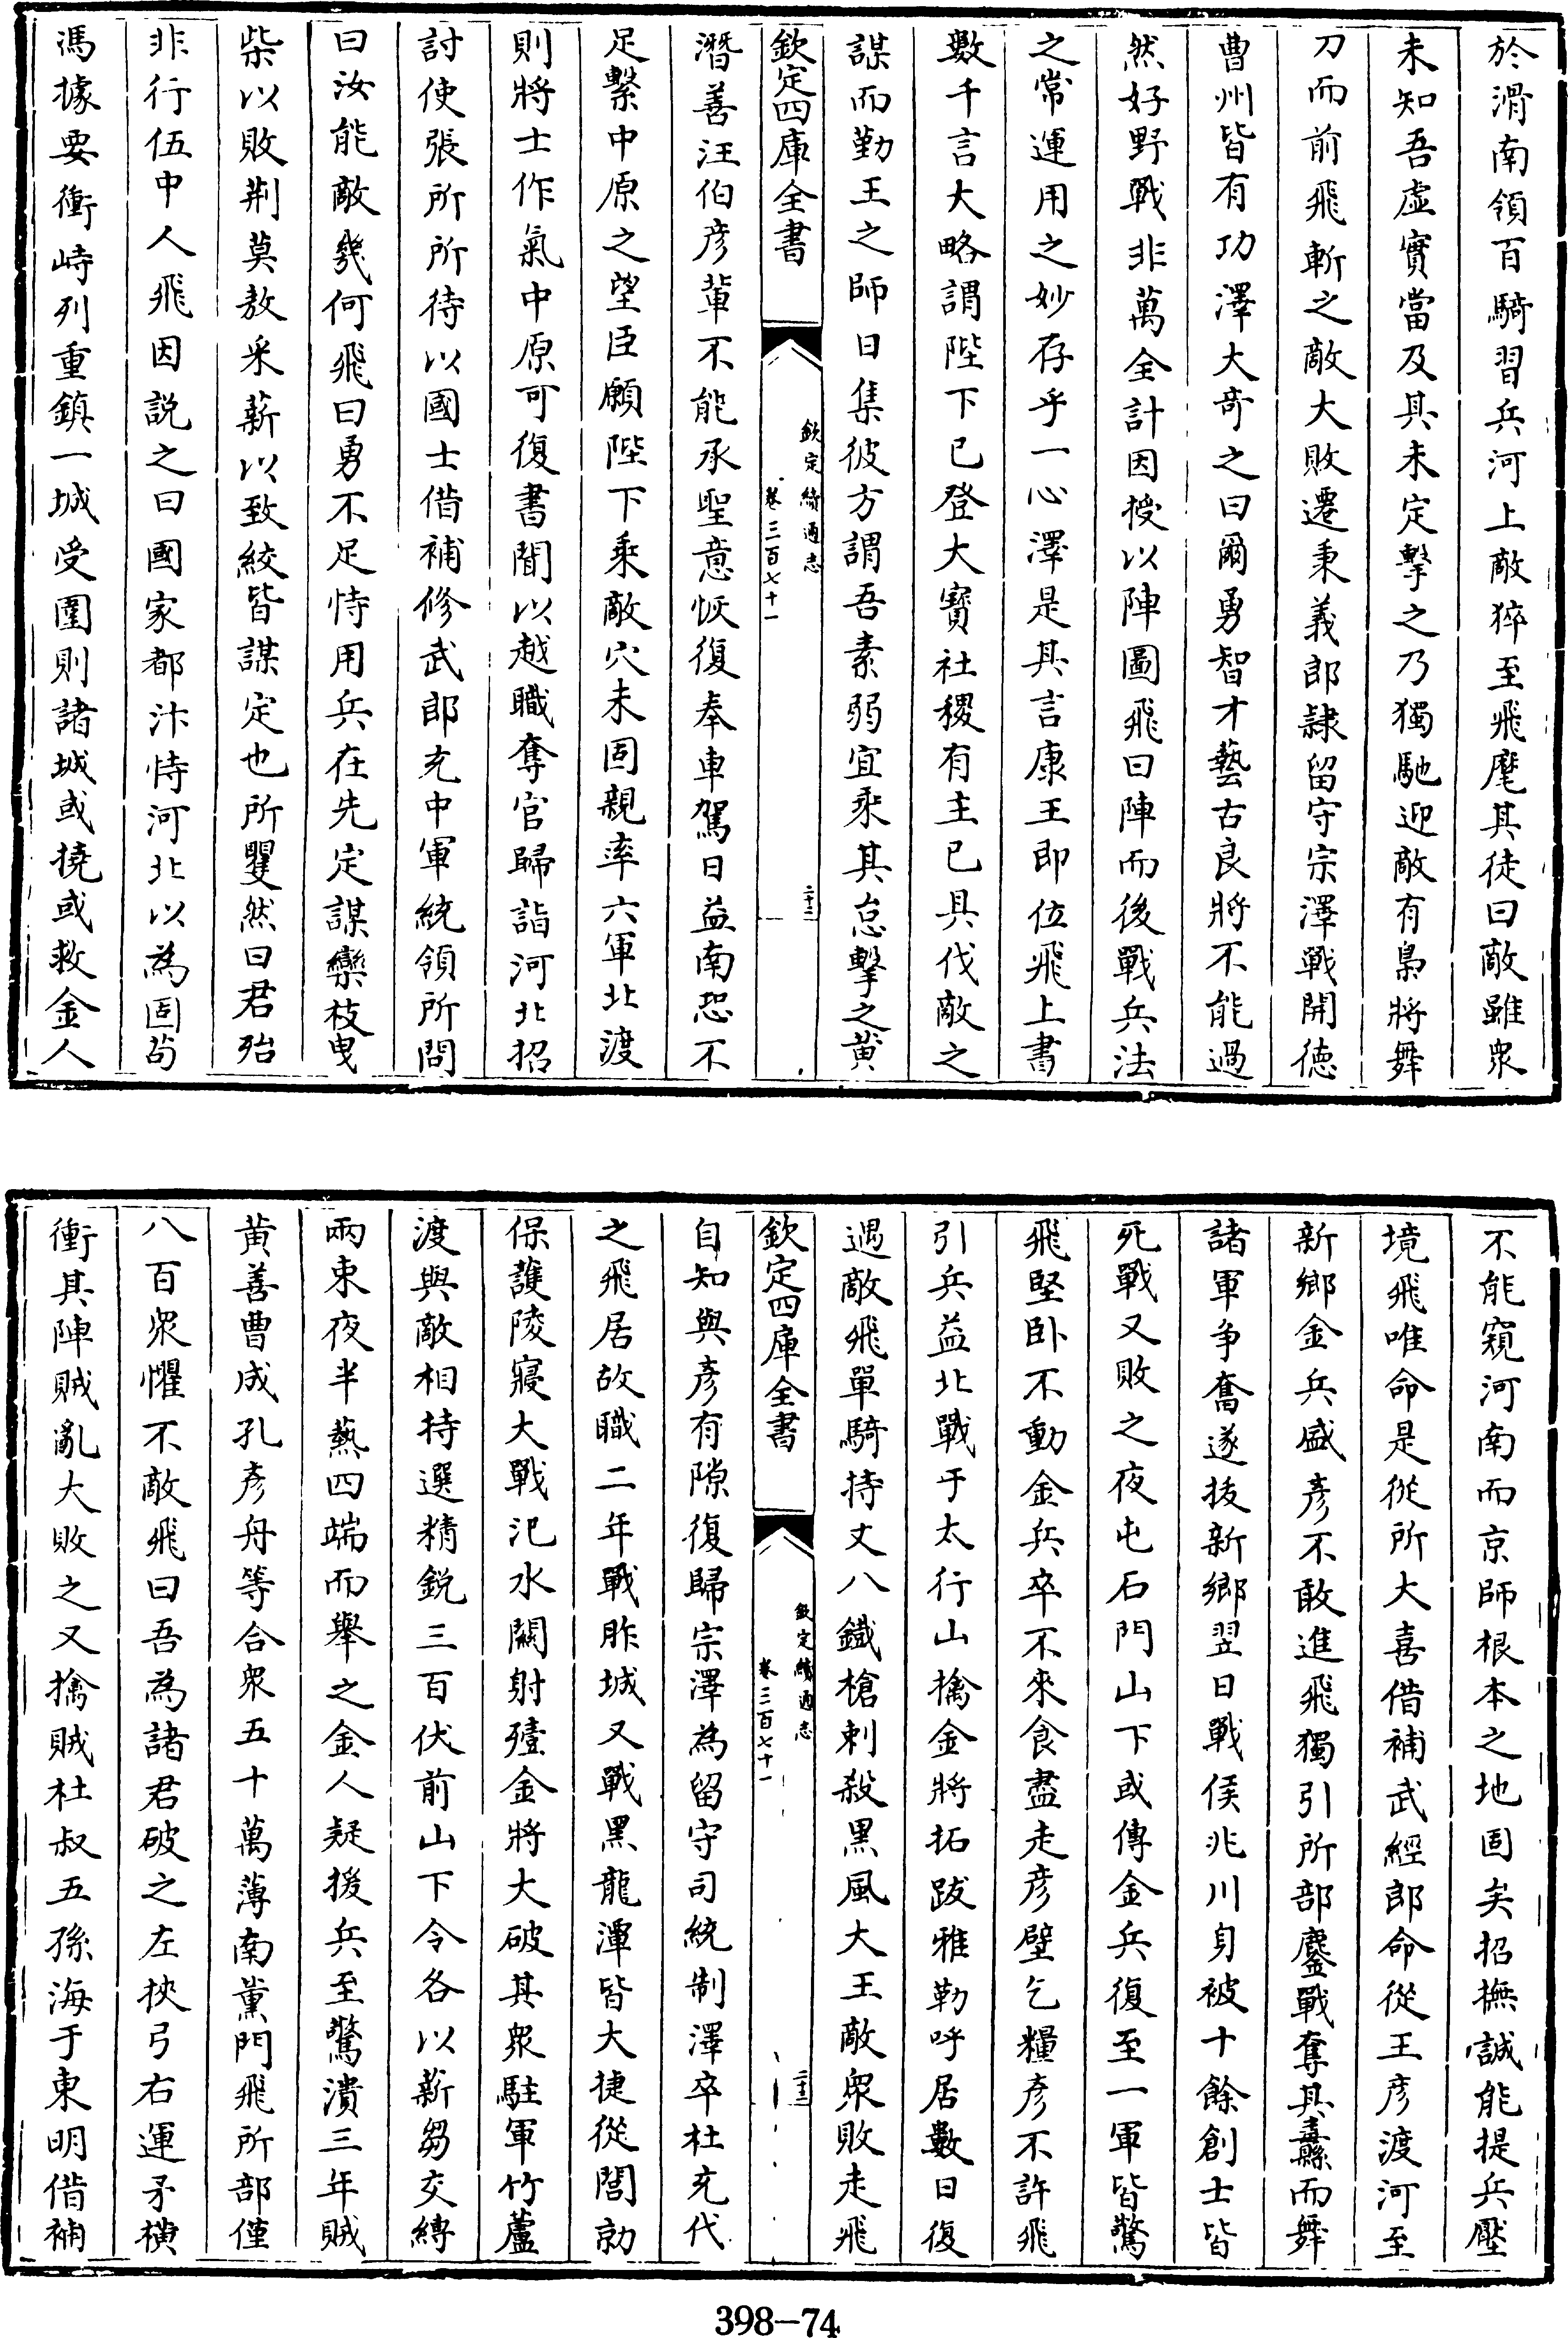 於滑南領百騎習兵河上敵猝至飛麾其徒曰敵雖衆
未知吾虛實當及其未定擊之乃獨馳迎敵有梟將舞
刀而前飛斬之敵大敗遷秉義郎隷留守宗澤戰開德
曹州皆有功澤大竒之曰爾勇智才藝古良將不能過
然好野戰非萬全計因授以陣圖飛曰陣而後戰兵法
之常運用之妙存乎一心澤是其言康王即位飛上書
數千言大略謂陛下已登大寳社稷有主已具伐敵之
謀而勤王之師日集彼方謂吾素弱宜乘其怠擊之黄
欽定四庫全書
欽定續通志
卷三百七十一
二十二
潛善汪伯彦軰不能承聖意恢復奉車駕日益南恐不
足繫中原之望臣願陛下乘敵穴未固親率六軍北渡
則將士作氣中原可復書聞以越職奪官歸詣河北招
討使張所所待以國士借補修武郎充中軍統領所問
曰汝能敵幾何飛曰勇不足恃用兵在先定謀欒枝曳
柴以敗荆莫敖采薪以致絞皆謀定也所矍然曰君殆
非行伍中人飛因說之曰國家都汴恃河北以為固苟
馮據要衝峙列重鎮一城受圍則諸城或撓或救金人
不能窺河南而京師根本之地固矣招撫誠能提兵壓
境飛唯命是從所大喜借補武經郎命從王彦渡河至
新鄉金兵盛彦不敢進飛獨引所部鏖戰奪其纛而舞
諸軍争奮遂拔新鄉翌日戰侯兆川身被十餘創士皆
死戰又敗之夜屯石門山下或傳金兵復至一軍皆驚
飛堅卧不動金兵卒不來食盡走彦壁乞糧彦不許飛
引兵益北戰于太行山擒金將拓跋雅勒呼居數日復
遇敵飛單騎持丈八鐵槍刺殺黑風大王敵衆敗走飛
欽定四庫全書
欽定續通志
卷三百七十一
二十三
自知與彦有隙復歸宗澤為留守司統制澤卒杜充代
之飛居故職二年戰胙城又戰黑龍潭皆大捷從閭勍
保護陵寢大戰汜水關射殪金將大破其衆駐軍竹蘆
渡與敵相持選精鋭三百伏前山下令各以薪芻交縳
兩束夜半爇四端而舉之金人疑援兵至驚潰三年賊
黄善曹成孔彦舟等合衆五十萬薄南薫門飛所部僅
八百衆懼不敵飛曰吾為諸君破之左挾弓右運矛横
衝其陣賊亂大敗之又擒賊杜叔五孫海于東明借補
398-74